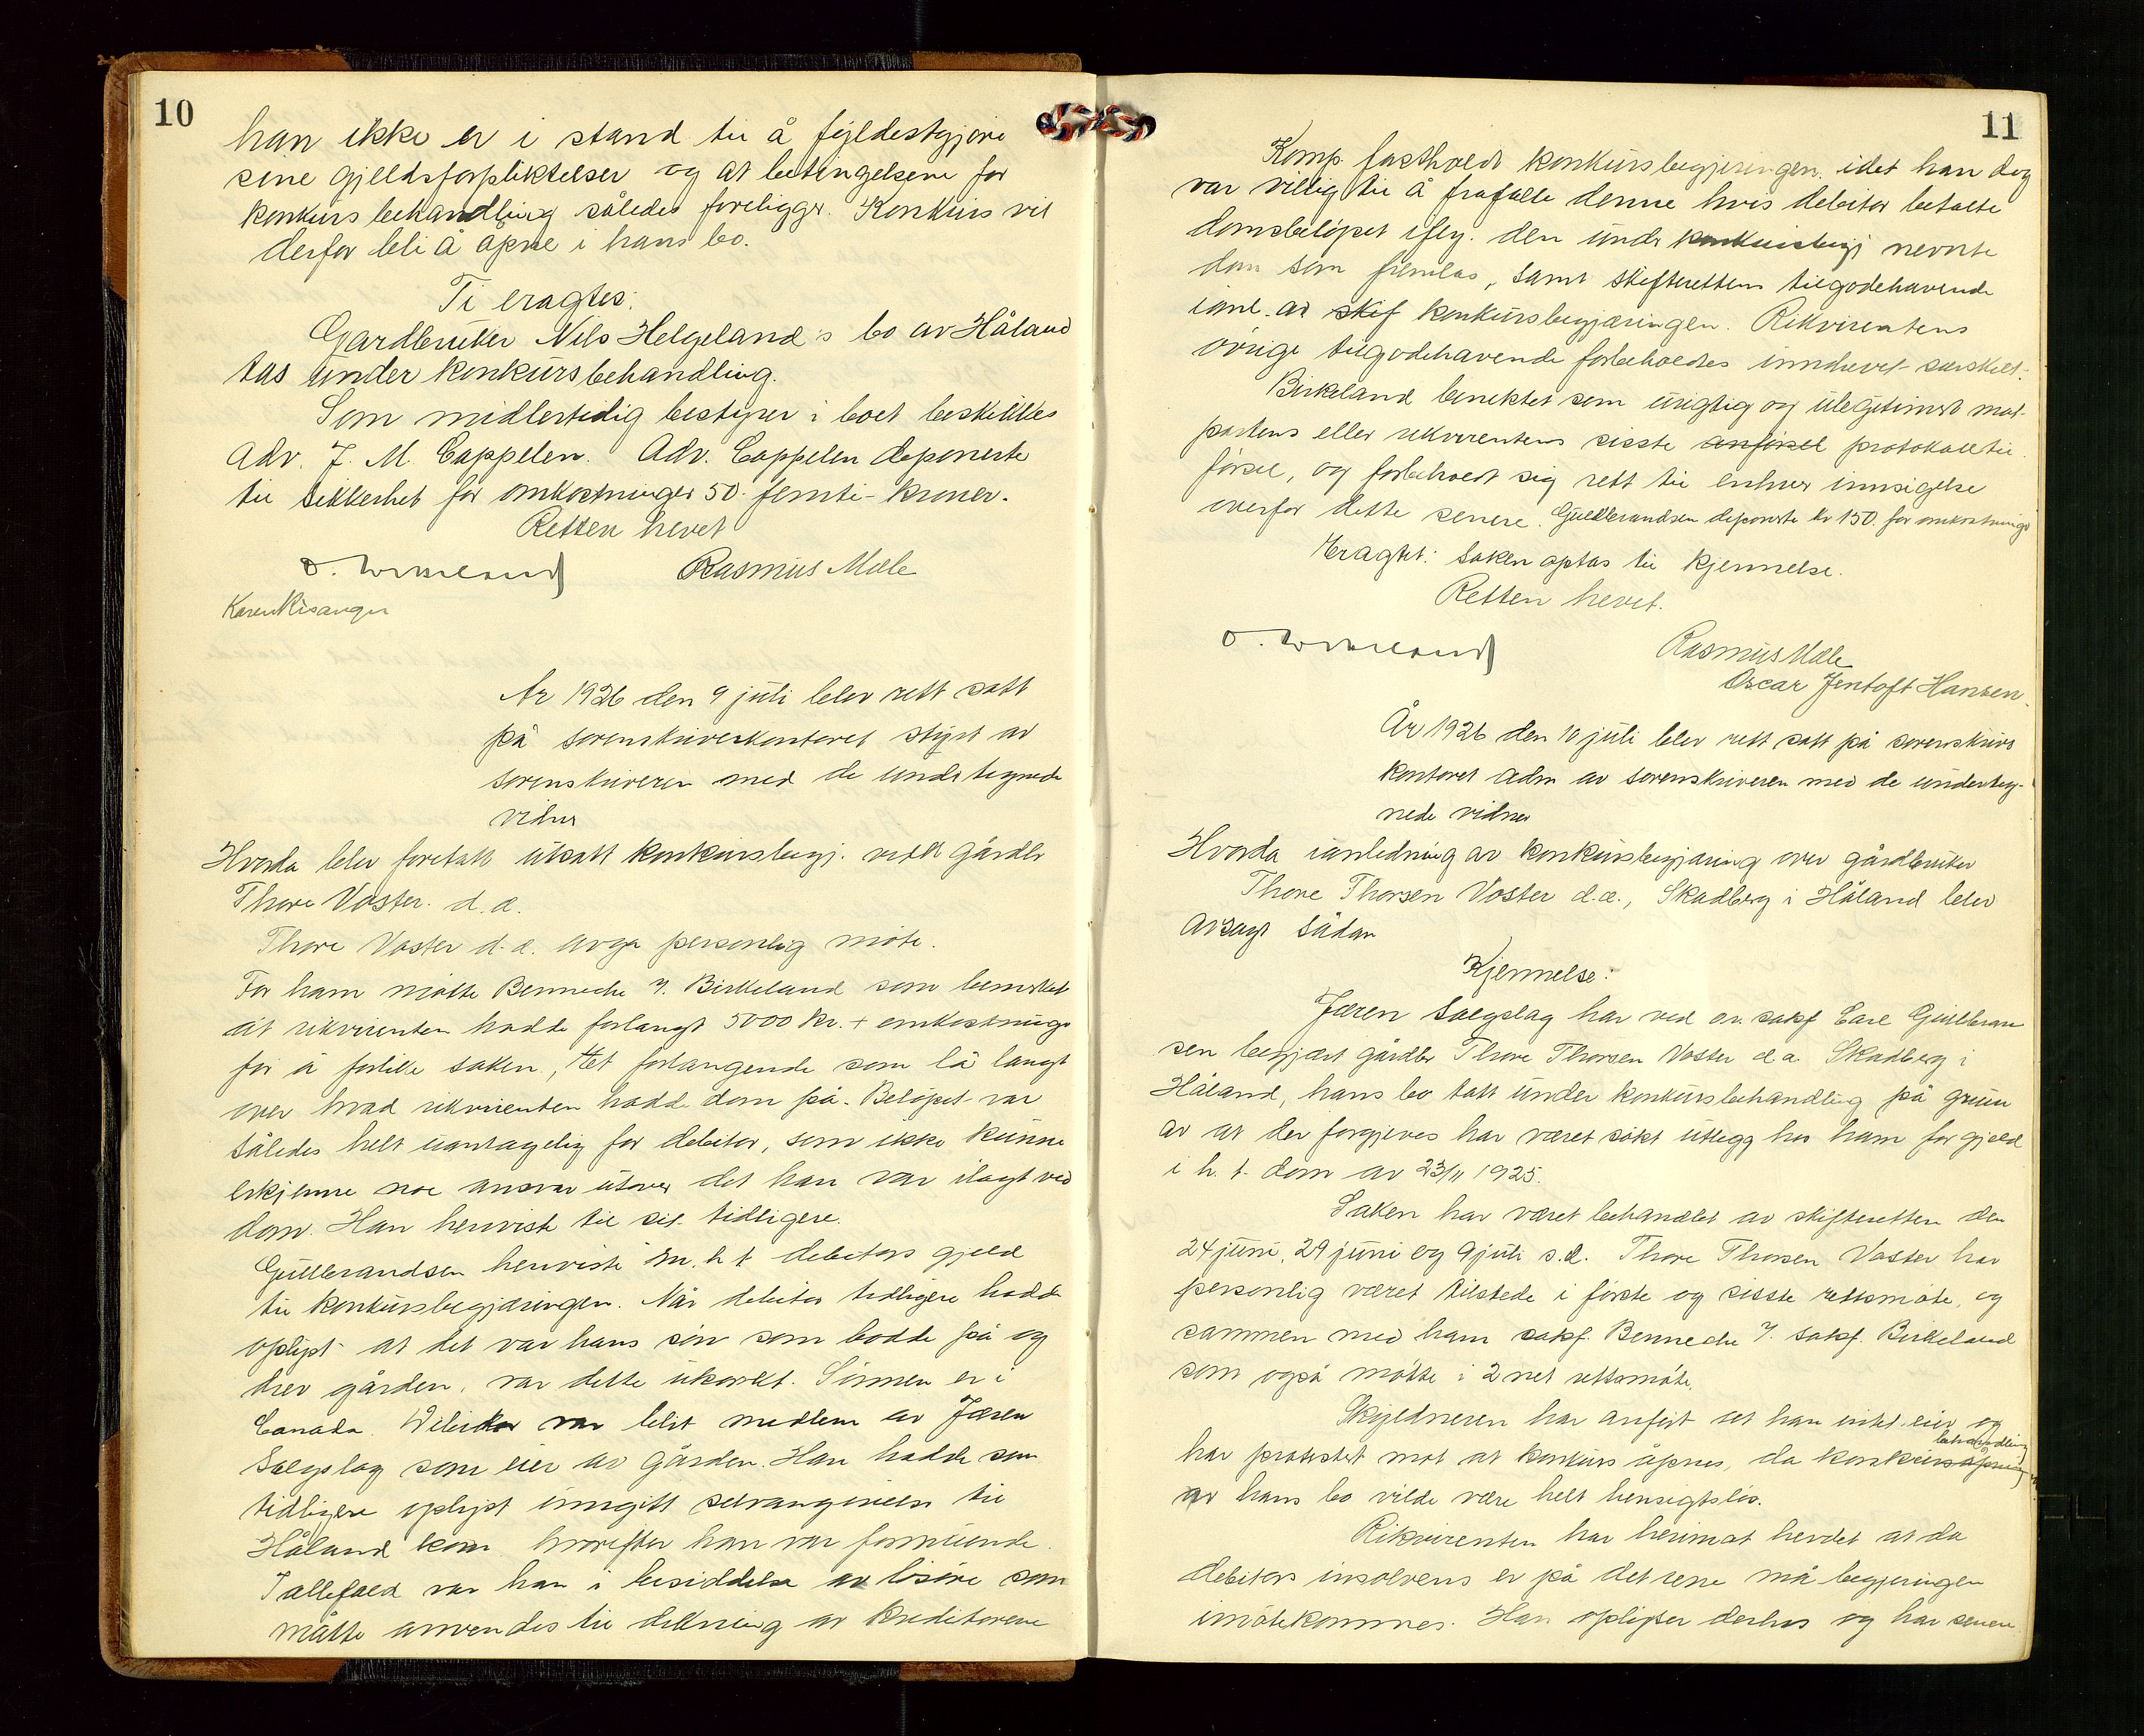 10
han ikke er i stand til å fyldestgjøre
sine gjeldsforpliktelser og at betingelsene for
konkursbehandling således foreligger. Konkurs vil
derfor bli å åpne i hans bo.
Ti eragtes:
Gardbruker Nils Helgeland's bo av Håland
tas under konkursbehandling.
Som midlertidig bestyrer i boet beskikkes
Adv. J. M. Cappelen. Adv. Cappelen deponerte
til sikkerhet for omkostninger 50 - femti - kroner.
Retten hevet
Rasmus Mæle
Karen Risanger
År 1926 den 9 juli blev rett satt
på sorenskriverkontoret styrt av
sorenskriveren med de undertegnede
vidner
Hvorda blev foretatt utsatt konkursbegj. vedk gårdbr
Thore Vaster d.æ.
Thore Vaster d.æ. avga personlig møte.
For ham møtte Benneche f. Birkeland som bemerket
at rekvirenten hadde forlangt 5000 kr. + omkostninger
for å forlike saken, et forlangende som lå langt
over hvad rekvirenten hadde dom på. Beløpet var
således helt uantagelig for debitor, som ikke kunne
erkjenne noe ansvar utover det han var ilagt ved
dom. Han henviste til sit tidligere.
Gulbrandsen henviste m. h. t. debitors gjeld
til konkursbegjæringen. Når debitor tidligere hadde
oplyst at det var hans sønn som bodde på og
drev gården, var dette ukorrekt. Sønnen er i
Canada. Debitor var blit medlem av Jæren
Salgslag som eier av gården. Han hadde som
tidligere oplyst inngitt selvangivelse til
Håland kom. hvorefter han var formuende.
I allefald var han i besiddelse av løsøre som
måtte anvendes til dekning av kreditorene
11
Komp. fastholdt konkursbegjæringen idet han dog
var villig til å frafalle denne hvis debitor betalte
domsbeløpet iflg. den under konkursbegj nevnte
dom som fremlas, samt skifterettens tilgodehavende
ianl. av skif konkursbegjæringen. Rekvirentens
øvrige tilgodehavende forbeholdtes inndrevet særskilt.
Birkeland benektet som urigtig og ulegitimert mot-
partens eller rekvirentens siste anførsel protokolltil-
førsel, og forbeholdt sig rett til enhver innsigelse
overfor dette senere. Gulbrandsen deponerte kr 150. for omkostninger
Eragtet: Saken optas til kjennelse.
Retten hevet.
Rasmus Mæle
Oscar Jentoft Hansen
År 1926 den 10 juli blev rett satt på sorenskriver
kontoret adm av sorenskriveren med de underteg-
nede vidner
Hvorda i anledning av konkursbegjæring over gårdbruker
Thore Thorsen Vaster d.æ., Skadberg i Håland blev
avsagt sådan
Kjennelse:
Jæren Salgslag har ved o.r. sakf Carl Gulbran
sen begjært gårdbr Thore Thorsen Vaster d.æ. Skadberg i
Håland, hans bo tatt under konkursbehandling på grunn
av at der forgjeves har været søkt utlegg hos ham for gjeld
i h. t. dom av 23/11 1925.
Saken har været behandlet av skifteretten den
24 juni, 29 juni og 9 juli s.å. Thore Thorsen Vaster har
personlig været tilstede i første og siste rettsmøte, og
sammen med ham sakf. Benneche f. sakf. Birkeland
som også møtte i 2net rettsmøte.
Skyldneren har anført at han intet eier og
har protestert mot at konkurs åpnes, da konkursåpning behandling
av hans bo vilde være helt hensigtsløs.
Rekvirenten har herimot hevdet at da
debitors insolvens er på det rene må begjæringen
imøtekommes. Han oplyser derhos og har senere